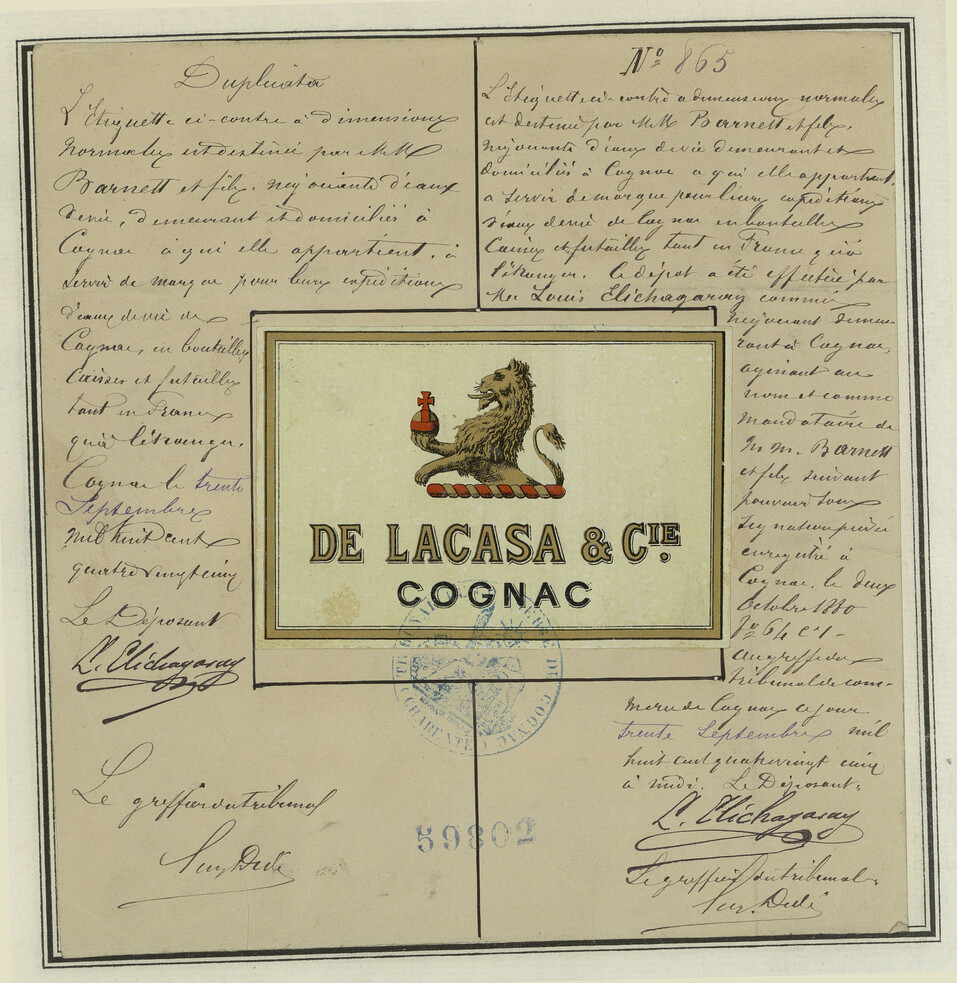 Duplicata
L'Etiquette ci-contre à dimensions
normales est destinée par MM
Barnett et fils, négociants d'eaux
devie, demeurant et domiciliés à
Cognac à qui elle appartient, à
servir de marque pour leurs expéditions
d'eaux devie de
Cognac, en bouteilles
Caisses et futailles
tant en France
qu'à l'étranger.
Cognac le trente
Septembre
mil huit cent
quatre vingt cinq
Le Déposant
L. Elichagaray
Le greffier du tribunal
No 865
L'Etiquette ci-contre a dimensions normales
est destinée par MM Barnett et fils,
négociants d'eaux devie demeurant et
domiciliés à Cognac a qui elle appartient,
a servir de marque pour leurs expéditions
d'eaux devie de Cognac en bouteilles
Caisses et futailles tant en France qu'à
l'étranger. Ce dépot a été effectué par
Mr Louis Elichagaray commis
négociant demeu-
rant à Cognac,
agissant au
nom et comme
mandataire de
M. M. Barnett
et fils suivant
pouvoir sous
signature privée
enregistré à
Cognac, le deux
Octobre 1880
fo 64 c 1 -
au greffe du
tribunal de com-
merce de Cognac ce jour
trente Septembre mil
huit cent quatre vingt cinq
à midi. Le Déposant,
L. Elichagaray
Le greffier du tribunal
DE LACASA & CIE.
COGNAC
TRIBUNAL DE COMMERCE DE COGNAC
(CHARENTE)
59802